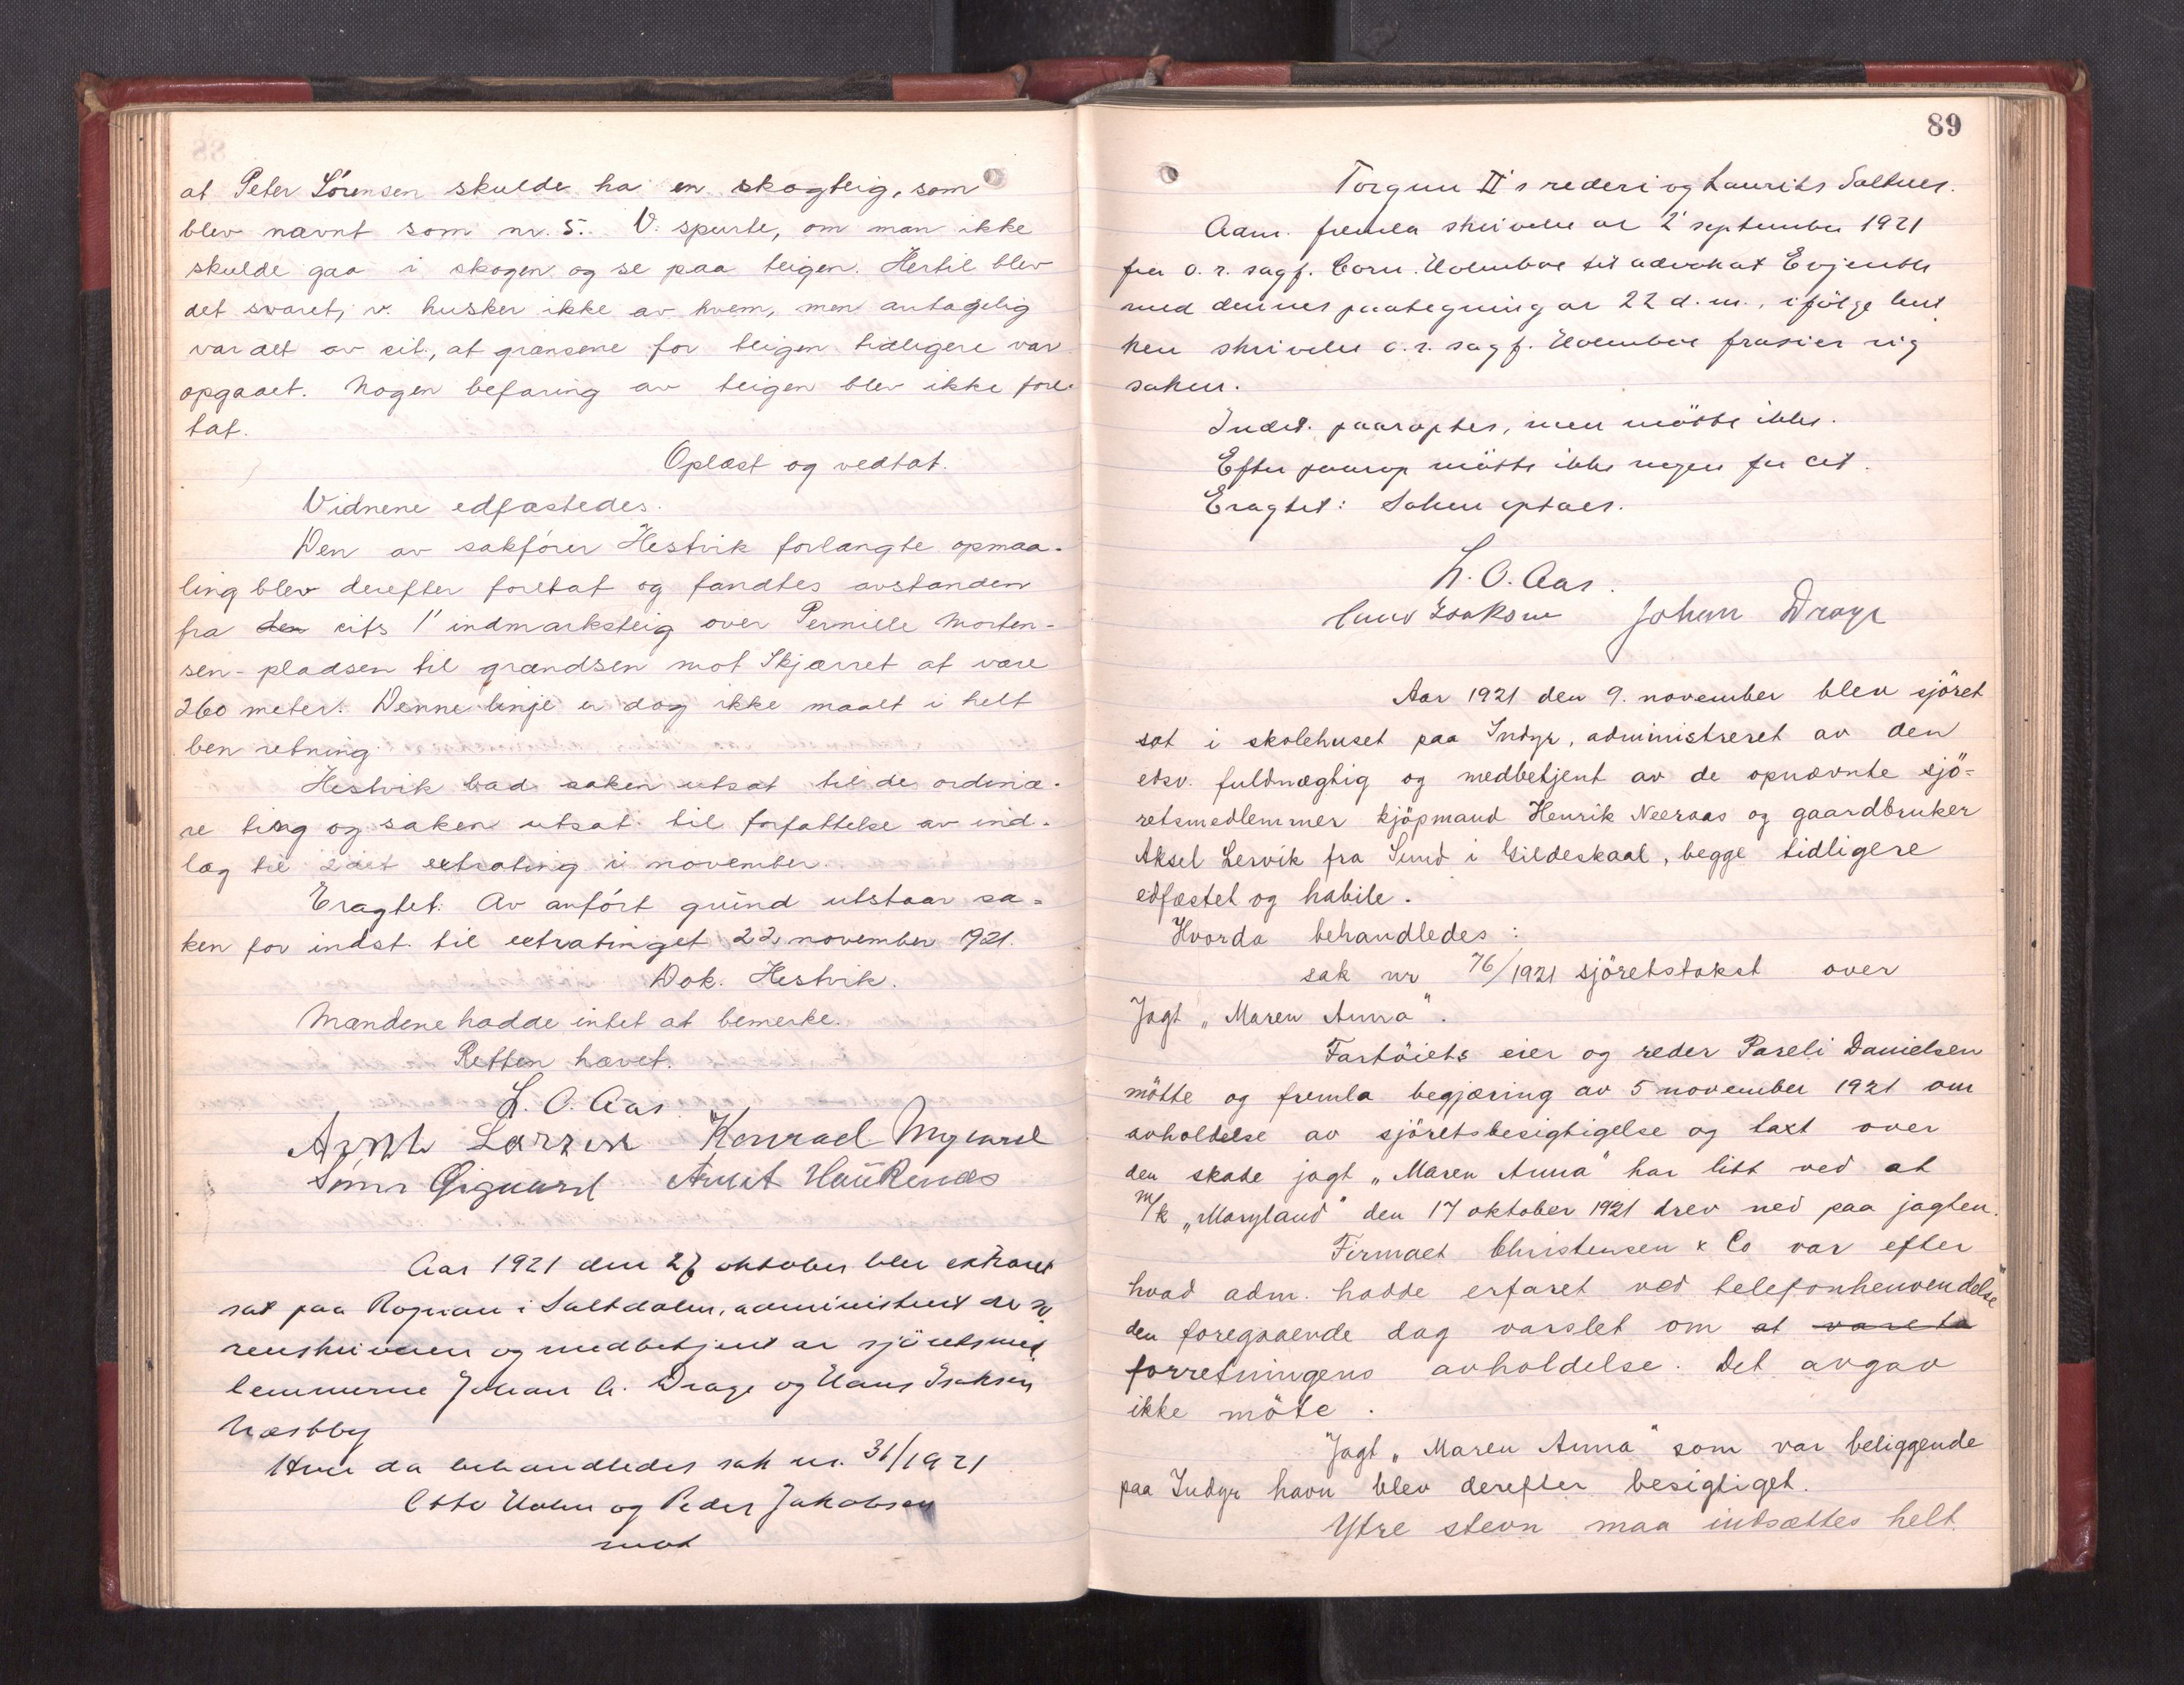 at Peter Sörensen skulde ha en skogteig, som
blev nævnt som nr. 5. V. spurte, om man ikke
skulde gaa i skogen og se paa teigen. Hertil blev
det svaret, v. husker ikke av hvem, men antagelig
var det av cit., at grænsene for teigen tidligere var
opgaaet. Nogen befaring av teigen blev ikke fore-
tat.
Oplæst og vedtat.
Vidnene edfæstedes.
Den av sakförer Hestvik forlangte opmaa-
ling blev derefter foretat og fandtes avstanden
fra den cits 1' indmarksteig over Pernille Morten-
sen-pladsen til grændsen mot Skjærret at være
260 meter. Denne linje er dog ikke maalt i helt
ben retning.
Hestvik bad saken utsat til de ordinæ-
re ting og saken utsat til forfattelse av ind-
læg til 2det extrating i november.
Eragtet: Av anfört grund utstaar sa-
ken for indst. til extratinget 22 november 1921.
Dok. Hestvik.
Mændene hadde intet at bemerke.
Retten hævet.
L. O. Aas.
Arnt Larsen Konrad
Arnt Haukenæs
Aar 1921 den 27 oktober blev extraret
sat paa Rognan i Saltdalen, administrert av so-
renskriveren og medbetjent av sjöretsmed
lemmerne Johan A. Drage og Hans Isaksen
Næstby
Hvor da behandledes sak nr. 31/1921
Otto Holm og Peder Jakobsen
mot
89
Torgun II's rederi og Laurits Saltnes.
Adm. fremla skrivelse av 2' september 1921
fra o. r. sagf. Corn. Holmboe til advokat Evjenth
med dennes paategning av 22 d. m., ifölge hvil
ken skrivelse o. r. sagf. Holmboe frasier sig
saken.
Indst. paaroptes, men mötte ikke.
Efter paarop mötte ikke nogen for cit.
Eragtet: Saken optaes.
L. O. Aas.
Hans Isaksen Johan Drage
Aar 1921 den 9. november blev sjöret
sat i skolehuset paa Indyr, administreret av den
edsv. fuldmægtig og medbetjent av de opnævnte sjö-
retsmedlemmer kjöpmand Henrik Neeraas og gaardbruker
Aksel Lervik fra Sund i Gildeskaal, begge tidligere
edfæstet og habile.
Hvorda behandledes:
sak nr 76/1921 sjöretstakst over
Jagt „Maren Anna".
Fartöiets eier og reder Pareli Danielsen
mötte og fremla begjæring av 5 november 1921 om
avholdelse av sjöretsbesigtigelse og taxt over
den skade jagt „Maren Anna" har litt ved at
m/k „Maryland" den 17 oktober 1921 drev ned paa jagten.
Firmaet Christensen & Co var efter
hvad adm. hadde erfaret ved telefonhenvendelse
den foregaaende dag varslet om at vareta
forretningens avholdelse. Det avgav
ikke möte.
Jagt „Maren Anna" som var beliggende
paa Indyr havn blev derefter besigtiget.
Ytre stevn maa indsættes helt